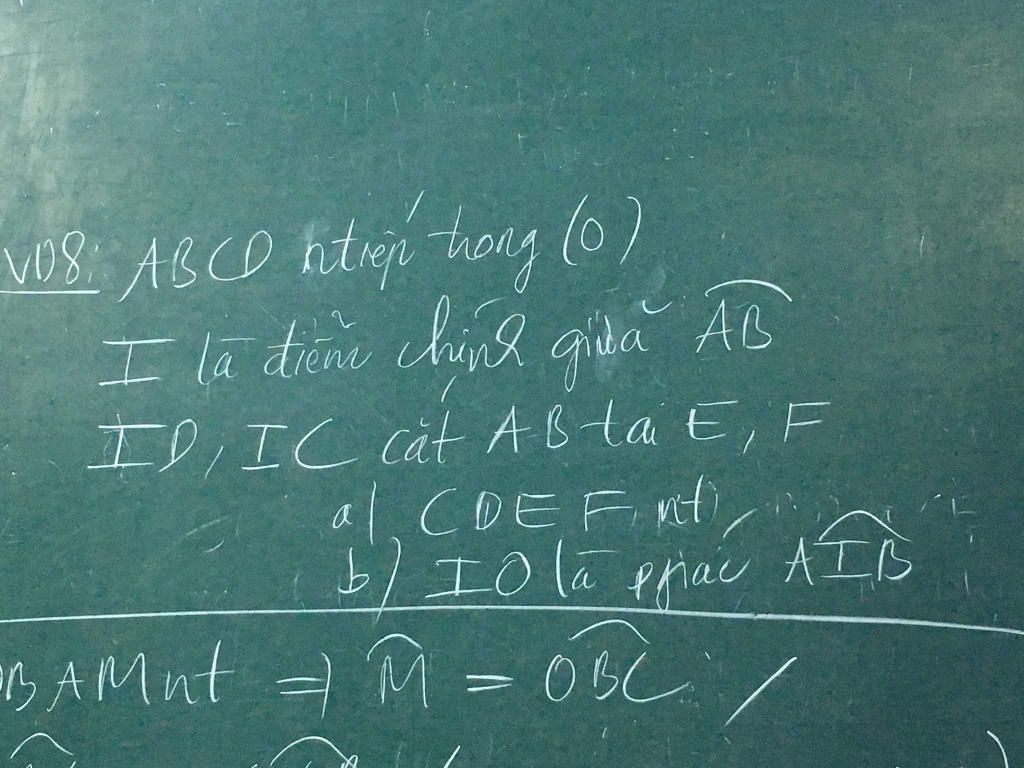 VD8: ABCD ntiếp trong (O)
I là điểm chính giữa AB
ID, IC cắt AB tại E, F
a) CDEF nt
b) IO là pgiác AIB
OBAMnt => M = OBC